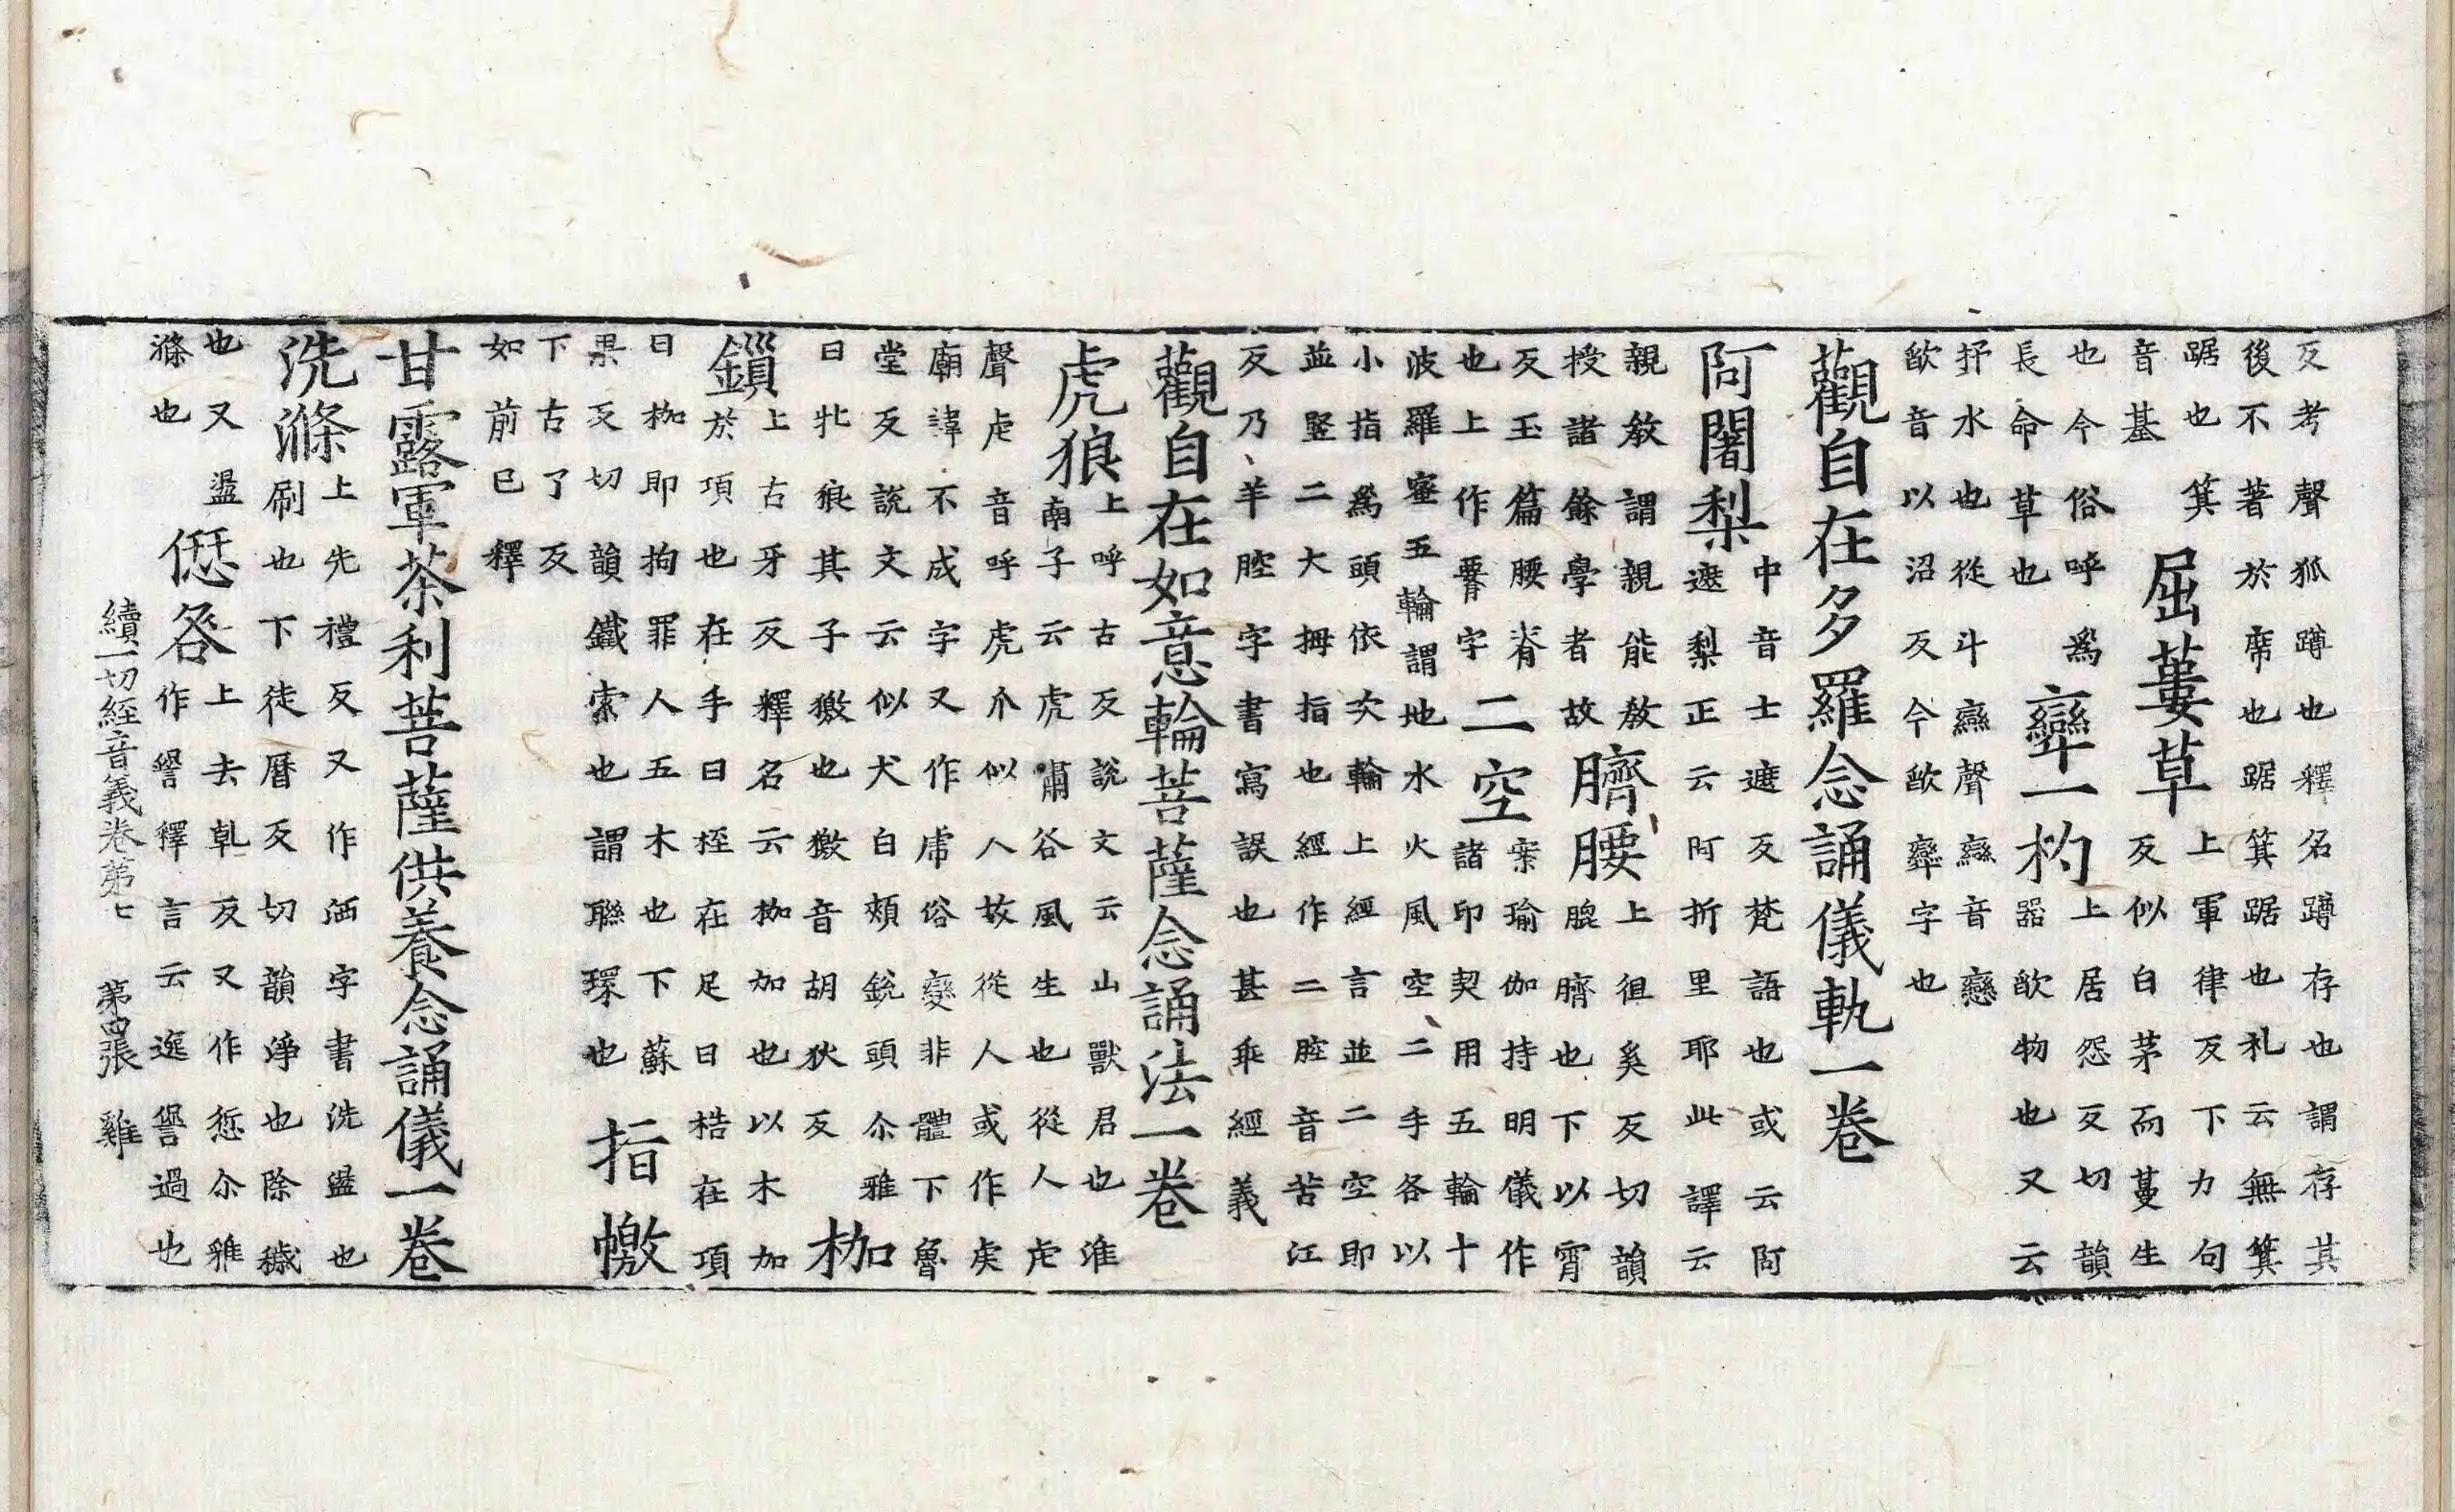 反考聲狐蹲也釋名蹲存也謂存其
後不著於席也踞箕踞也礼云無箕
踞也箕
音基
屈蔞草
上軍律反下力句
反似白茅而蔓生
也今俗呼爲
長命草也
㪻一杓
上居怨反切韻
器㪺物也又云
抒水也從斗䜌聲䜌音戀
㪺音以沼反今㪺㪻字也
觀自在多羅念誦儀軌一卷
阿闍梨
中音士遮反梵語也或云阿
遮梨正云阿折里耶此譯云
親教謂親能教
授諸餘學者故
臍腰
上徂奚反切韻
腹臍也下以霄
反玉篇腰脊
也上作𦝫字
二空
案瑜伽持明儀作
諸印契用五輪十
波羅蜜五輪謂地水火風空二手各以
小指爲頭依次輪上經言並二空即
並竪二大拇指也經作二腔音苦江
反乃羊腔字書寫誤也甚乖經義
觀自在如意輪菩薩念誦法一卷
虎狼
上呼古反說文云山獸君也淮
南子云虎嘯谷風生也從人虍
聲虍音呼虎爪似人故從人或作
廟諱不成字又作虝俗變非體下魯
堂反說文云似犬白頰銳頭尒雅
曰牝狼其子獥也獥音胡狄反
枷
鏁
上古牙反釋名云枷加也以木加
於項也在手曰桎在足曰梏在項
曰枷即拘罪人五木也下蘇
果反切韻鐵索也謂聯環也
指
下古了反
如前已釋
甘露軍茶利菩薩供養念誦儀一卷
洗滌
上先禮反又作洒字書洗盪也
刷也下徒曆反切韻淨也除穢
也又盪
滌也
咎
上去乹反又作愆尒雅
作諐釋言云逸諐過也
續一切經音義卷第七 第四張 雞